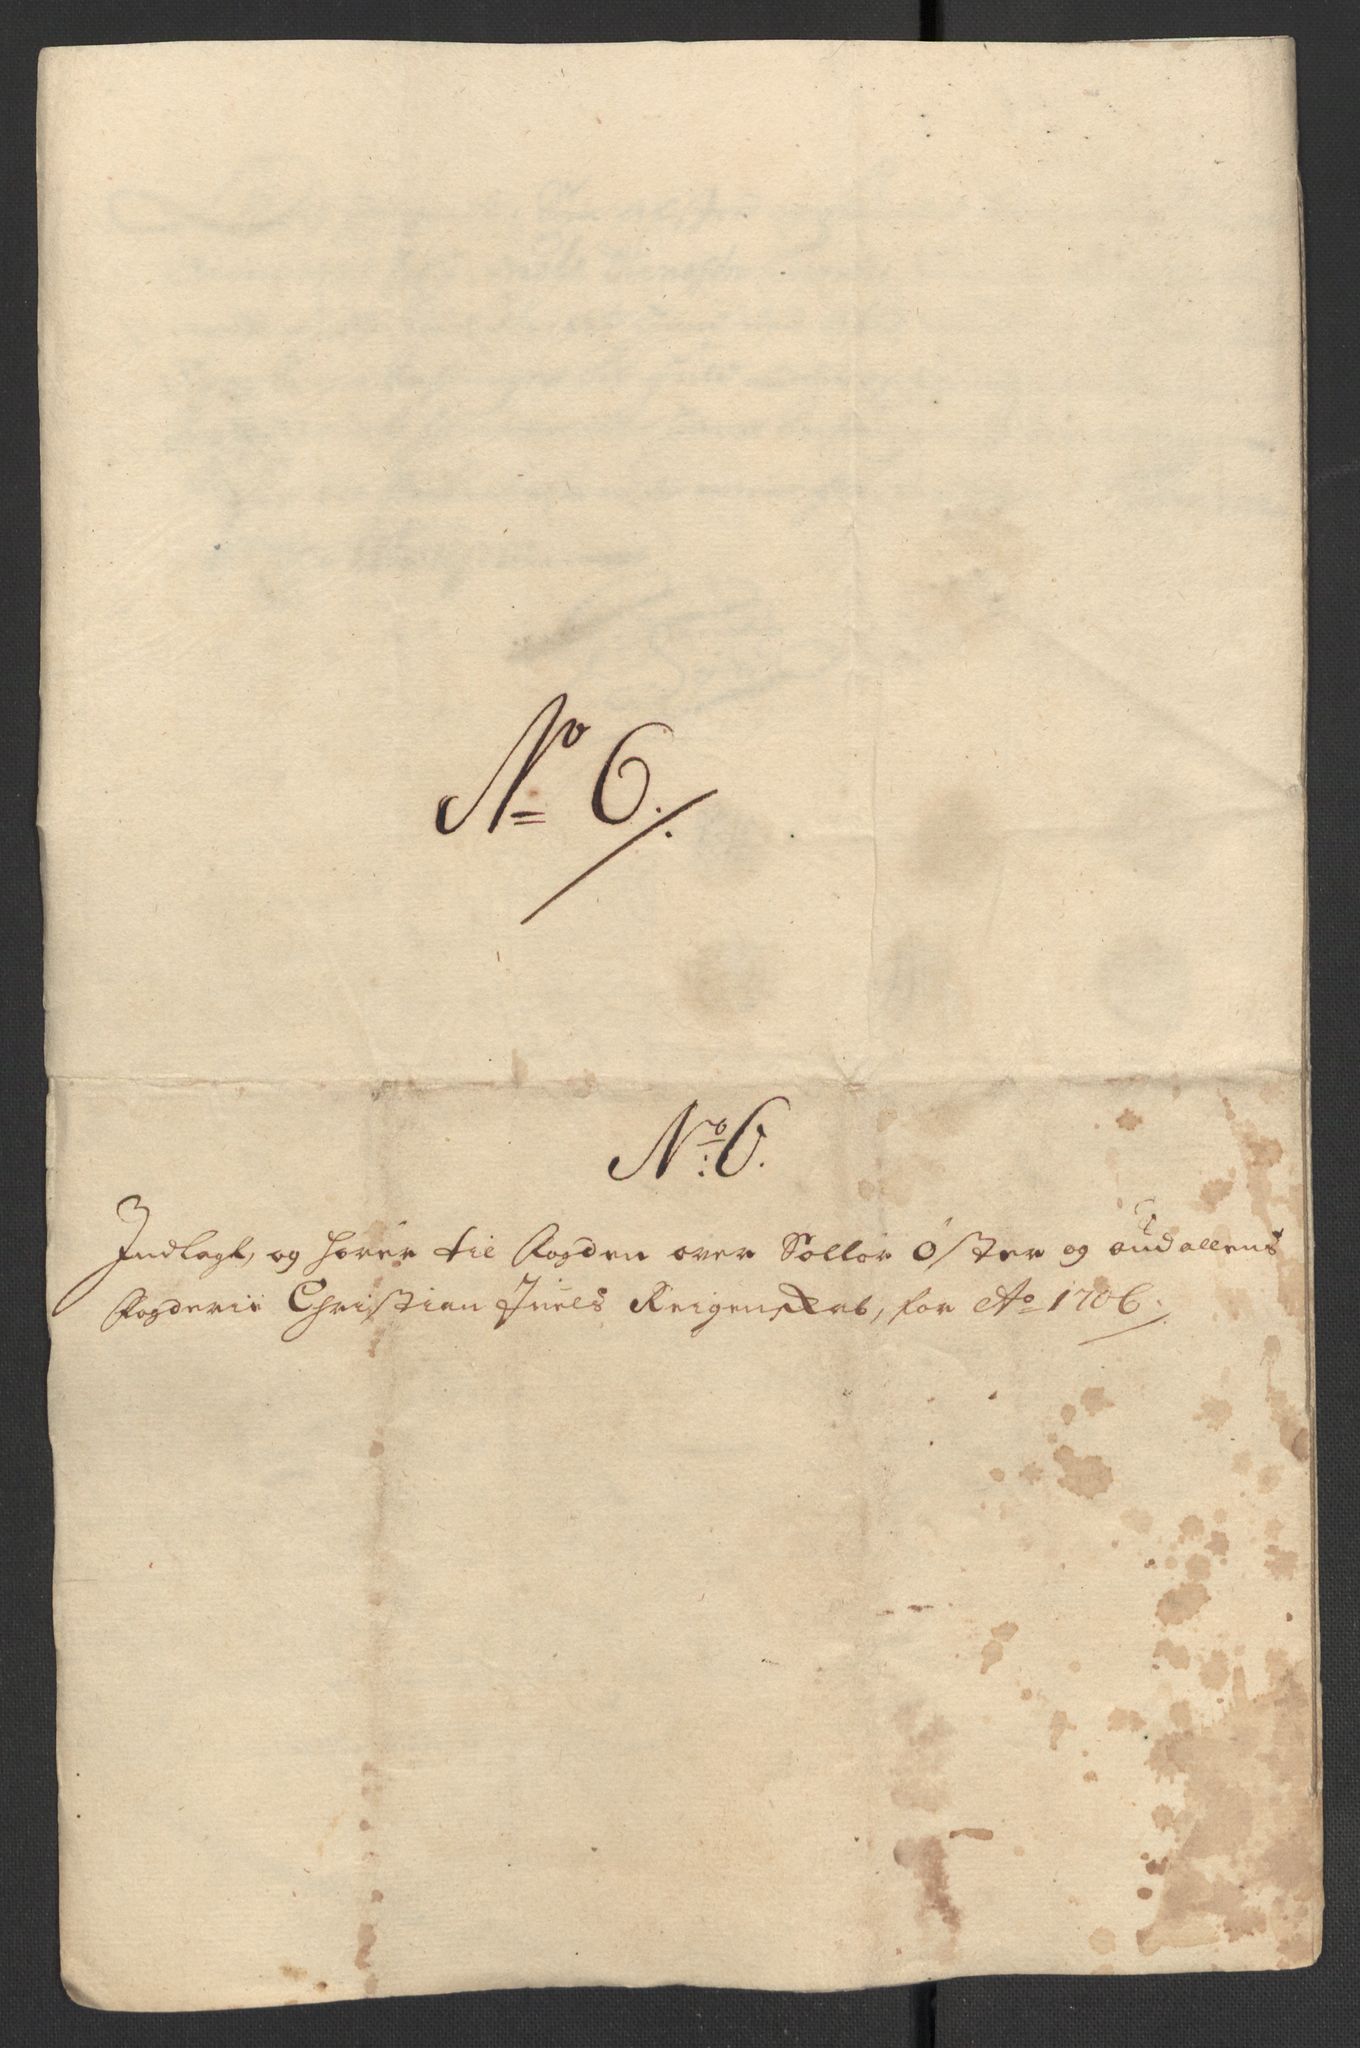 No 6.
No: 6.
Indlagt, og hører til Fogden over Sollør Øster og Oudallens
Fogderie Christian Juels Reigenskab, for Ao 1706.